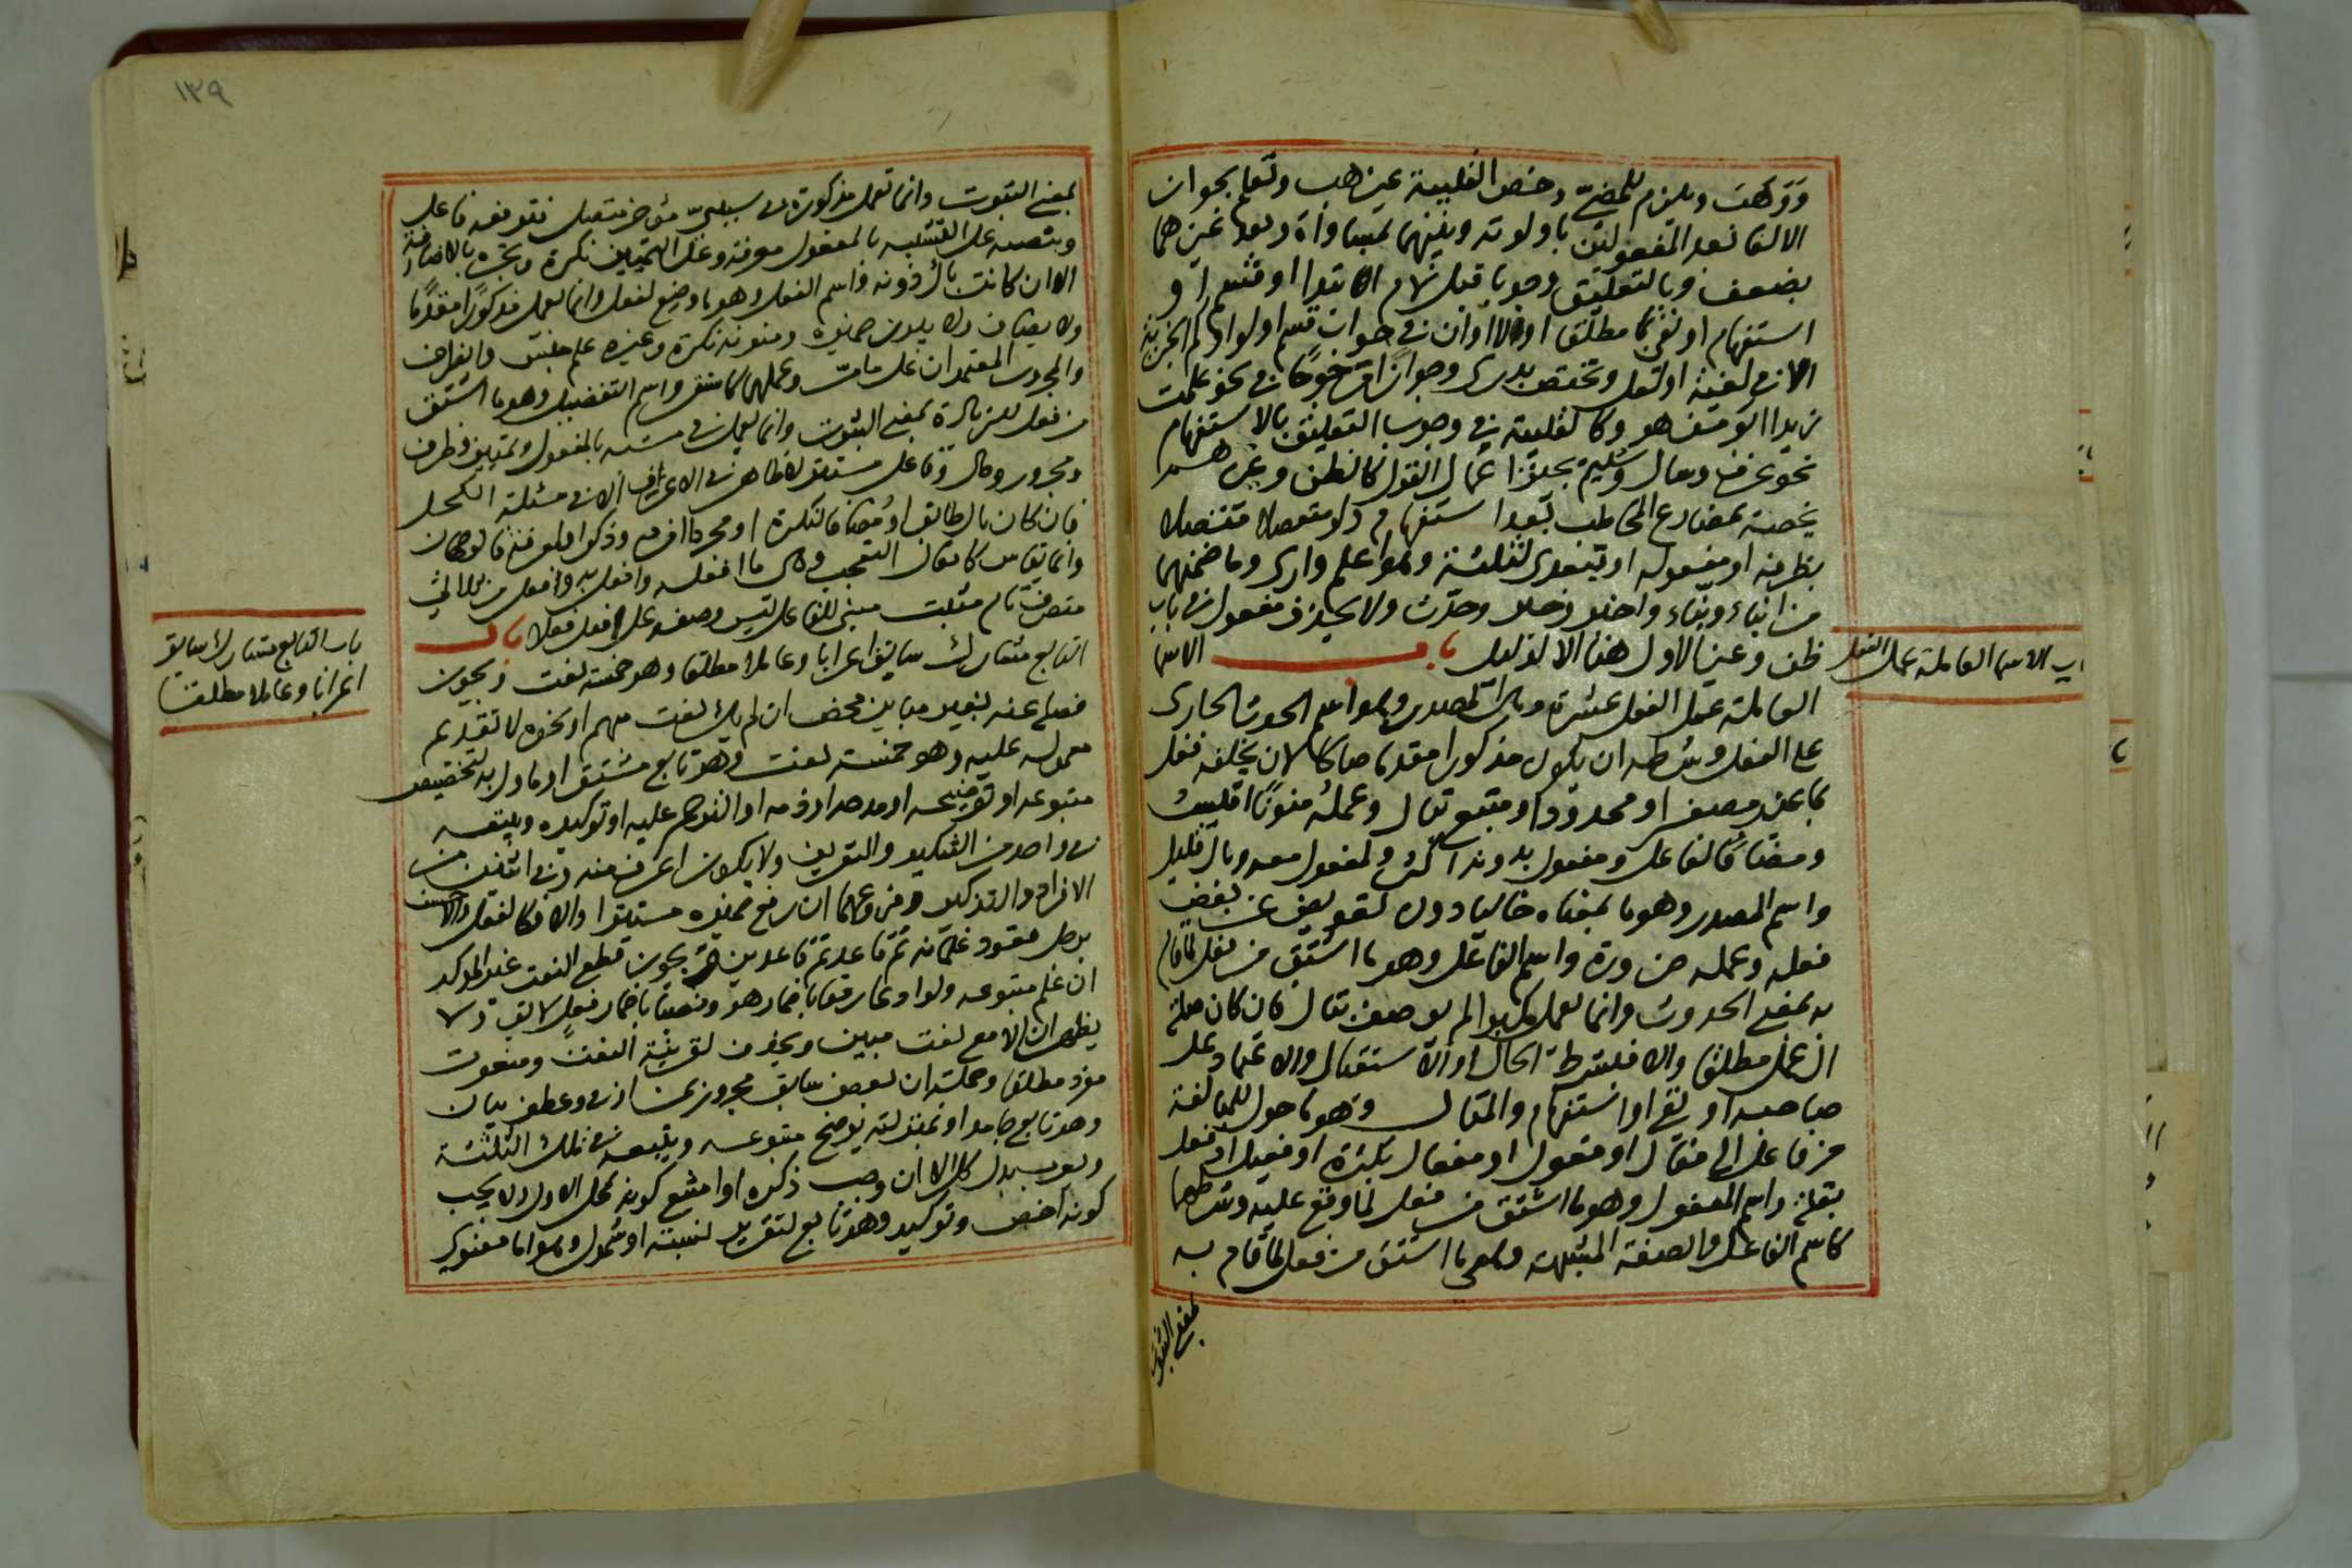 ووهب ويلزم للمضي وخص القلبية غير هب وتعلم بجواز
الالغا بعد المفعولين باولوية وبينهما بمساواة وقبلهما
بضعف وبالتعليق وجوبا قبل لام الابتدا او قسم او
استفهام او نفي بما مطلقا او لا او ان في جواب قسم او لو او كم الخبرية
او ان في لغية او لعل وتختص بدرى وجوازا في نحو علمت
زيدا ابو من هو وكالقلبية في وجوب التعليق بالاستفهام
نحو عرف وسال وسليم يجوز اعمال القول كالظن وغيرهم
يخصه بمضارع المخاطب بعد استفهام ولو متصلا منفصلا
بظرف او مفعوله او يتعدى لثلثة وهو اعلم وارى وما ضمنهما
من انباء ونباء واخبر وخبر وحدث ولا يحذف مفعول في باب
ظن وغير الاول هنا الا لدليل باب الاسما
العاملة عمل الفعل عشرة وهي المصدر وهو اسم الحدث الجاري
على الفعل وشرطه ان يكون مذكورا مقدما صالحا لان يخلفه فعل
بما غير مصغر او محدود او متبع تمال وعمله منونا اقيس
ومضافا لفاعل ومفعول بدونه اكثر ولمفعول معه وبال قليل
واسم المصدر وهو ما بمعناه خاليا دون تعويض عن بعض
فعله وعمله ضرورة واسم الفاعل وهو ما اشتق من فعل لما قام
به بمعنى الحدوث وانما يعمل مكبرا لم يوصف تمال فان كان صلة
ال عمل مطلقا والا فبشرط الحال او الاستقبال والاعتماد على
صاحبه او نفي او استفهام والمثال وهو ما حول للمبالغة
من فاعل الى فعال او فعول او مفعال بكثرة او فعيل او فعل
بقلة واسم المفعول وهو ما اشتق من فعل لما وقع عليه وشرطهما
كاسم الفاعل والصفة المشبهة وهي ما اشتق من فعل لما قام به
بمعنى الثبوت
باب الاسما العاملة عمل الفعل
١٣٩
بمعنى الثبوت وانما تعمل مذكورة في سببي مؤخر متصل فترفعه فاعل
وينصبه على التشبيه بالمفعول معرفة وعلى التمييز نكرة ويجره بالاضافة
الا ان كانت بال دونه واسم الفعل وهو ما وضع لفعل وانما يعمل مذكورا مقدما
ولا يضاف ولا يبرز ضميره ومنونه نكرة وغيره علم جنس والظرف
والمجرور المعتمدان على ما مر وعملهما كاستقر واسم التفضيل وهو ما اشتق
من فعل للزيادة بمعنى الثبوت وانما يعمل في مشبه بالمفعول وتمييز وظرف
ومجرور وحال وفاعل مستتر لا ظاهر في الاعرف الا في مسئلة الكحل
فان كان بال طابق او مضافا لنكرة او مجردا افرد وذكر او لمعرفة فالوجهان
وانما يقاس كافعال التعجب وهي ما افعله وافعل به وافعل من ثلاثي
متصرف تام مثبت مبني للفاعل ليس وصفه على افعل فعلا باب
التابع مشارك سابق اعرابا وعاملا مطلقا وهو خمسة نعت ويجوز
فصله عنه بغير مباين محض ان لم يك نعت مبهم او نحوه لا تقديم
معموله عليه وهو خمسة نعت وهو تابع مشتق او ماول به لتخصيص
متبوعه او توضيحه او مدحه او ذمه او الترحم عليه او توكيده ويتبعه
في واحد من التنكير والتعريف ولا يكون اعرف منه وفي اثنين من
الافراد والتذكير وفروعهما ان رفع ضميره مستترا والا فكالفعل والاحسن
برجل قعود غلمانه ثم قاعد ثم قاعدين ويجوز قطع النعت غير الموكد
ان علم متبوعه ولو ادعا رفعا باضمار هو ونصبا باضمار فعل لائق ولا
يظهران الا مع نعت مبين ويحذف لقرينة النعت ومنعوت
مفرد مطلقا وجملة ان لبعض سابق مجرور بمن او في وعطف بيان
وهو تابع جامد او بمنزلته يوضح متبوعه ويتبعه في تلك الثلثة
ويعرب بدل كل الا ان وجب ذكره او امتنع كونه محل الاول ولا يجب
كونه اخص وتوكيد وهو تابع لتقرير لنسبة او شمول وهو اما معنوي
باب التابع مشارك سابق
اعرابا وعاملا مطلقا